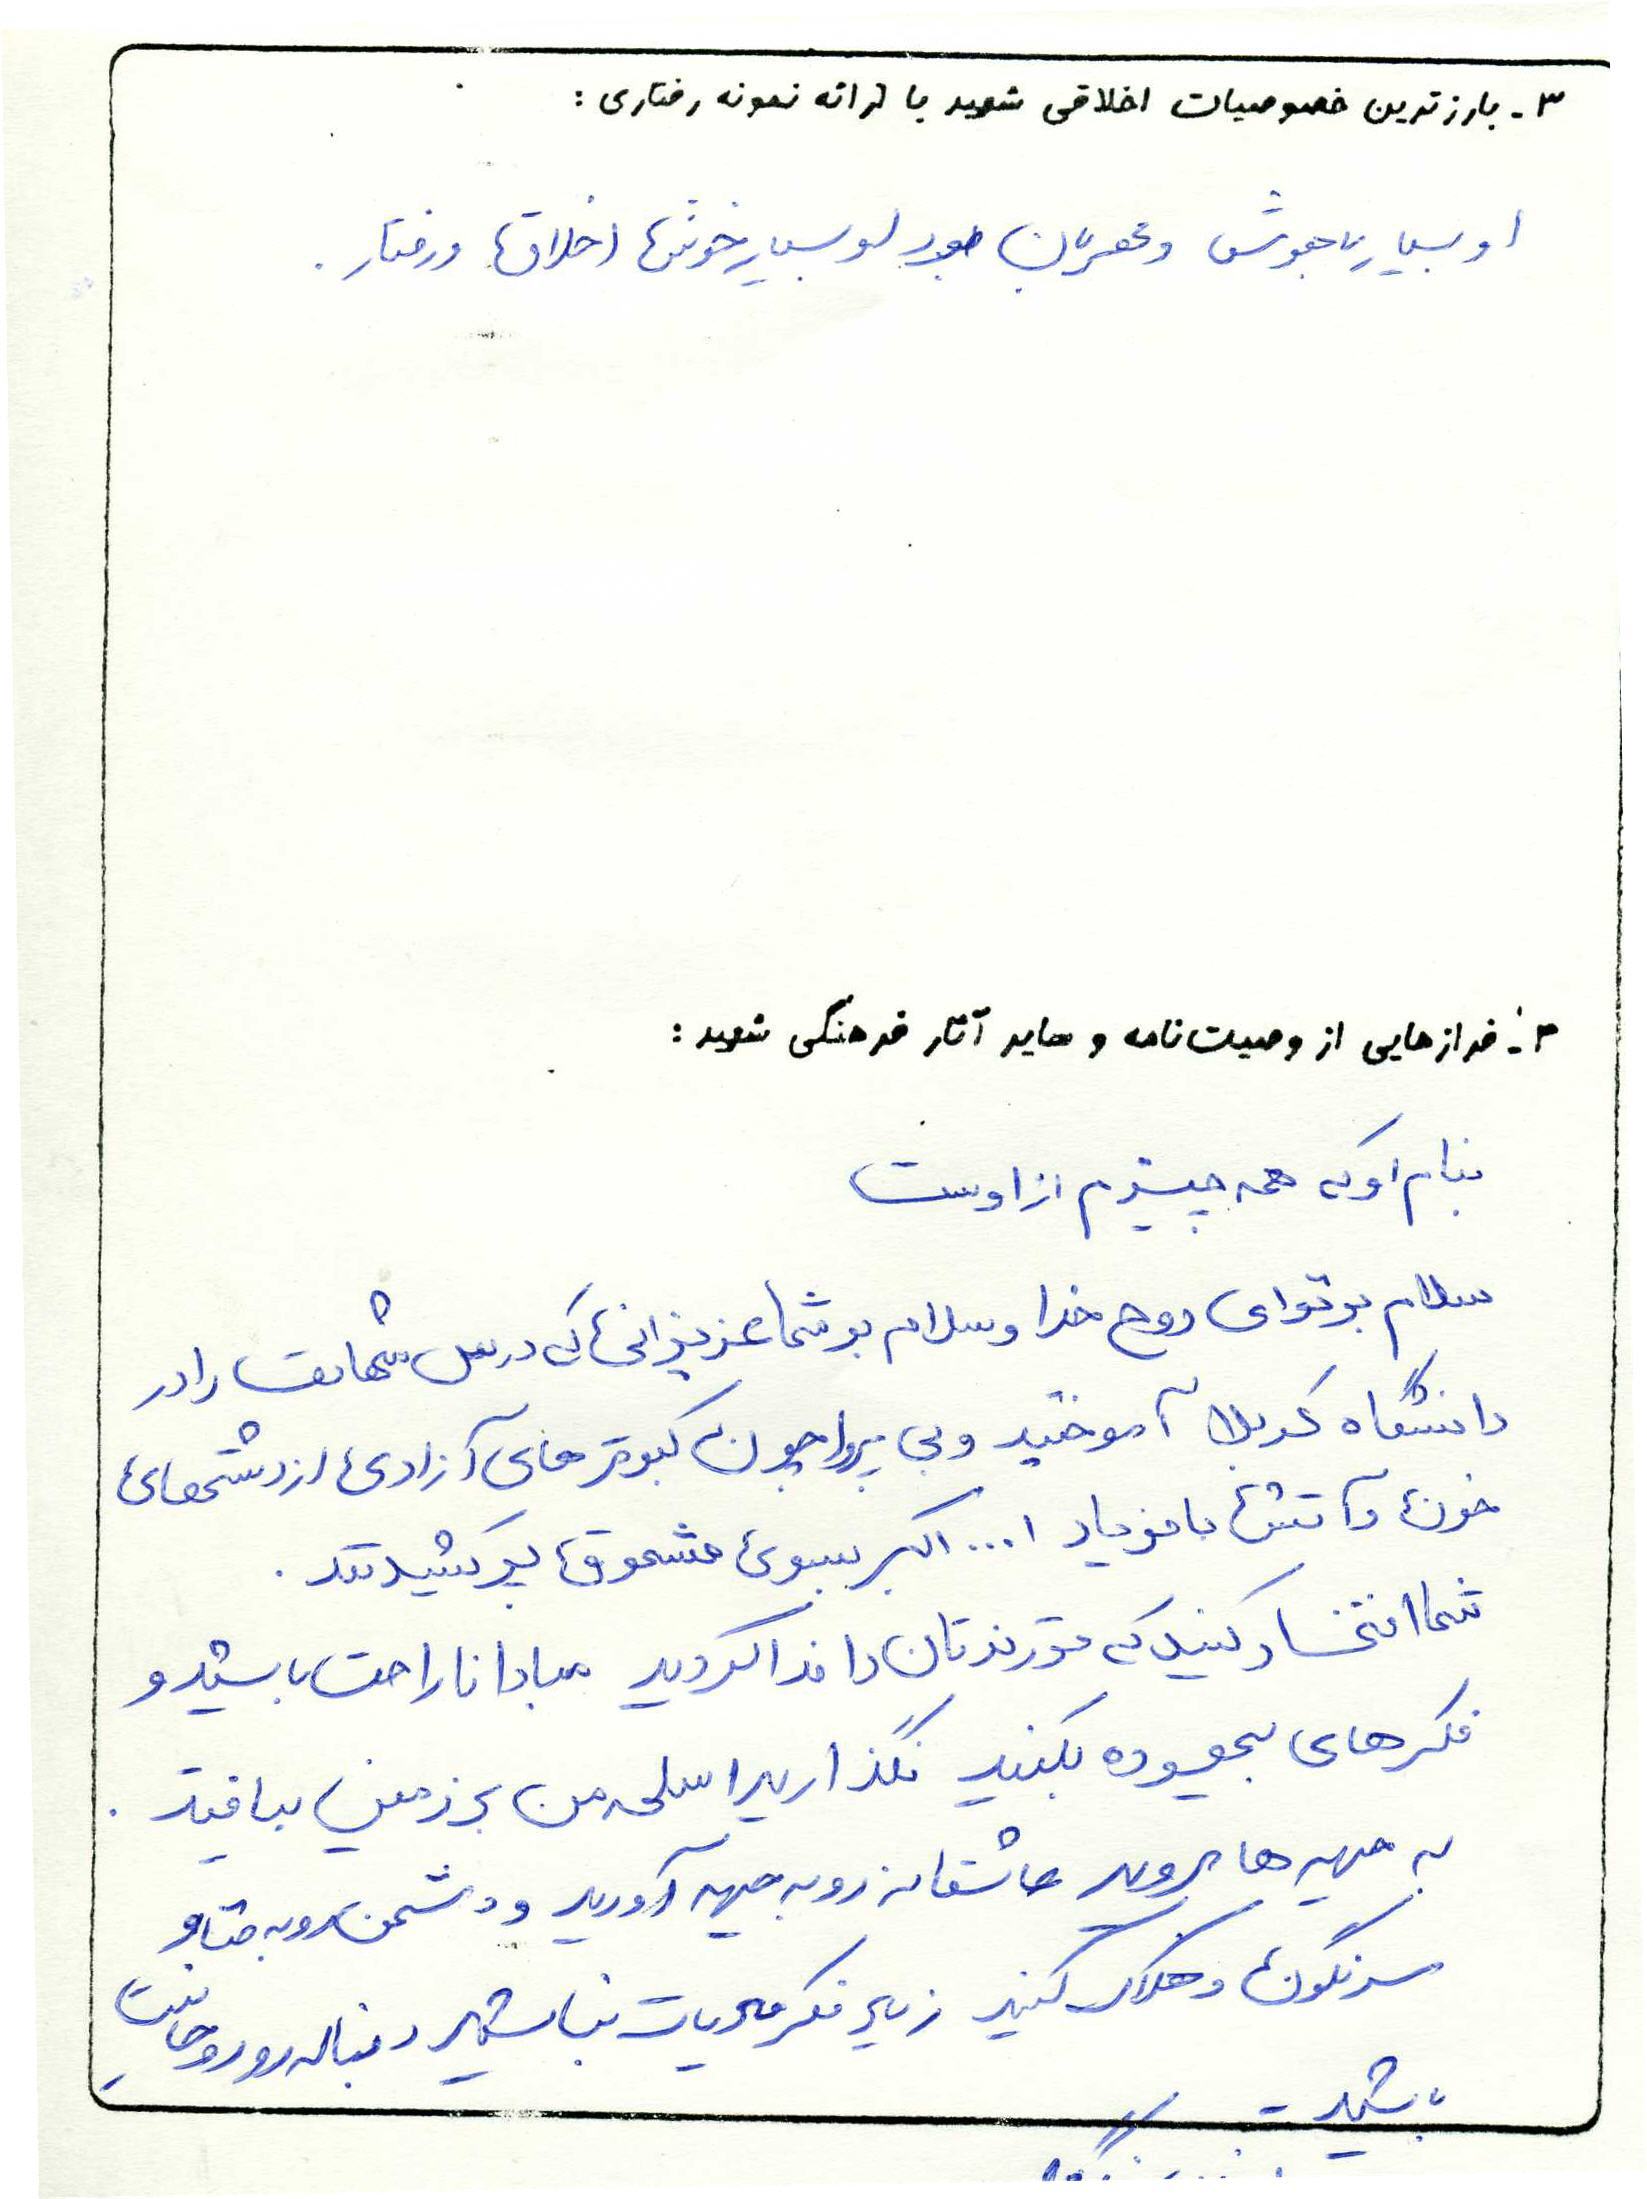 ۳ـ بارزترین خصوصیات اخلاقی شهید با ارائه نمونه رفتاری :
او بسیار باجوش و مهربان بود او بسیار خوش اخلاق و رفتار .
۴ـ فرازهایی از وصیت‌نامه و سایر آثار فرهنگی شهید :
بنام او که همه چیزم از اوست
سلام بر تو ای روح خدا و سلام بر شما عزیزانی که درس شهادت را در
دانشگاه کربلا آموختید و بی پروا چون کبوترهای آزادی از دشتهای
خون و آتش با فریاد ا... اکبر بسوی معشوق پر کشیدند .
شما افتخار کنید که فرزندتان را فدا کردید مبادا ناراحت باشید و
فکرهای بیهوده بکنید نگذارید اسلحه من بر زمین بیافتد .
به جبهه ها بروید عاشقانه رو به جبهه آورید و دشمن رو به فنا و
سرنگون و هلاک کنید زیاد فکر مادیات نباشید دنباله رو روحانیت
باشید -